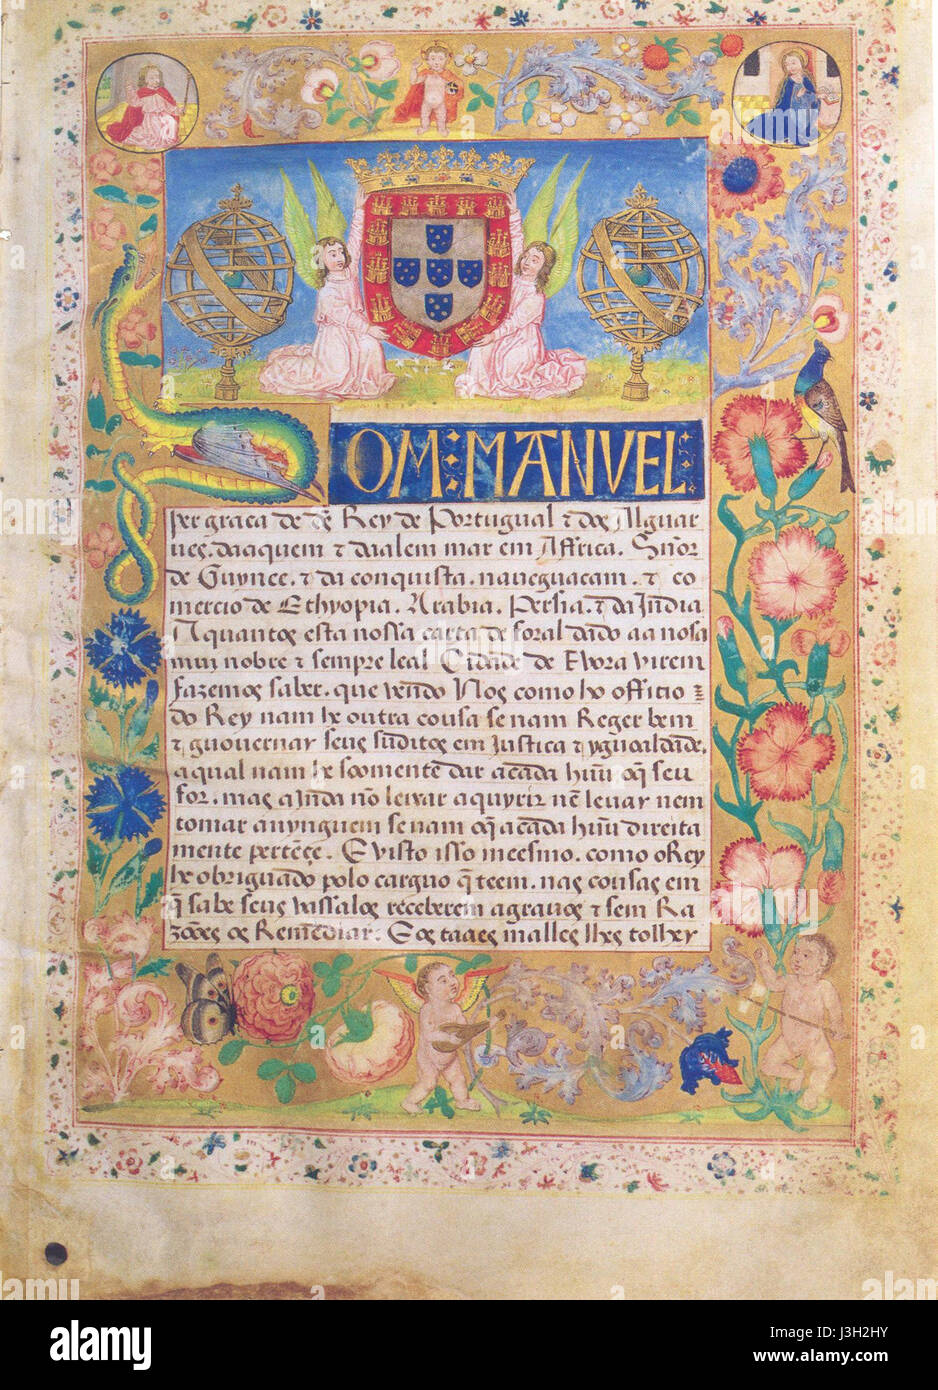 DOM : MANVEL :
per graça de dẽs Rey de Portugual ⁊ dos Alguar
ves. daaquem ⁊ daalem mar em Affrica. Sñor
de Guynee. ⁊ da conquista. naueguacam. ⁊ co
mercio de Ethyopia. Arabia. Persia. ⁊ da India
A quantos esta nossa carta de foral dado aa nosa
mui nobre ⁊ sempre leal Cidade de Evora virem
fazemos saber. que vẽndo Nos como ho officio
do Rey nam he outra cousa se nam Reger bem
⁊ guouernar seus sũditos em Justica ⁊ ygualdade.
a qual nam he soomente dar a cada hũu o q̃ seu
for. mas aJnda nõ leixar aquyrir nẽ leuar nem
tomar a nynguem se nam o q̃ a cada hũu direita
mente pertẽçe. E visto isso meesmo. como o Rey
he obriguado polo carguo q̃ teem. nas cousas em
q̃ sabe seus vassalos receberem agrauos ⁊ sem Ra
zõoes os Remediar. E os taaes malles lhes tolher
alamy
alamy
Image ID: J3H2HY
www.alamy.com